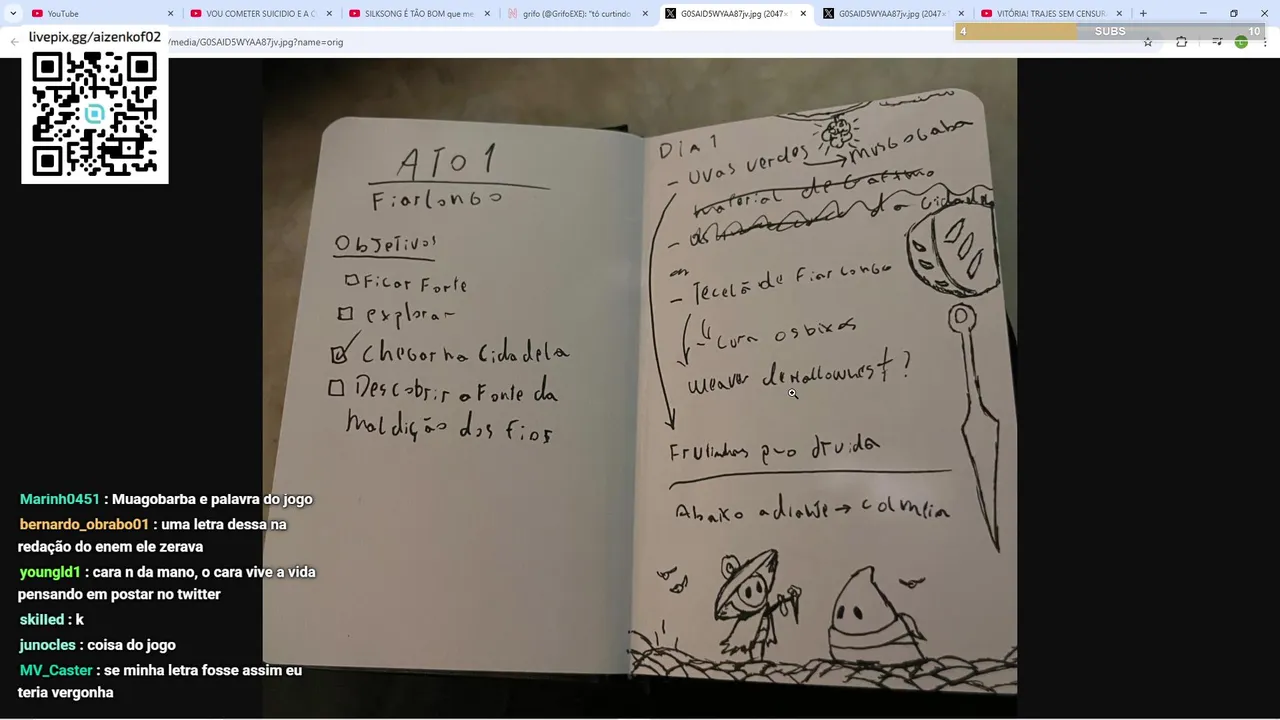 YouTube
VOU COMETER SUICIDIO E A C
SILKSONG É TÃO BOM que me
grifo (@GrifoEXE): "tô curtindo
G0SAID5WYAA87jv.jpg (2047×
G0SAID5WYAA87jv.jpg (2047×
VITÓRIA! TRAJES SEM CENSUR
/media/G0SAID5WYAA87jv.jpg?name=orig
4 SUBS 10
livepix.gg/aizenkof02
ATO 1
Fiarlongo
Objetivos
Ficar Forte
explorar
Chegar na Cidadela
Descobrir a Fonte da
Maldição dos fios
Dia 1
- Uvas verdes → Musgobaba
- da Cidadela
- Tecelã de Fiarlongo
- Cura os bixos
weaver de Hallownest?
Frutinhas pro druida
Abaixo adiante → colmeia
Marinh0451 : Muagobarba e palavra do jogo
bernardo_obrabo01 : uma letra dessa na
redação do enem ele zerava
youngld1 : cara n da mano, o cara vive a vida
pensando em postar no twitter
skilled : k
junocles : coisa do jogo
MV_Caster : se minha letra fosse assim eu
teria vergonha